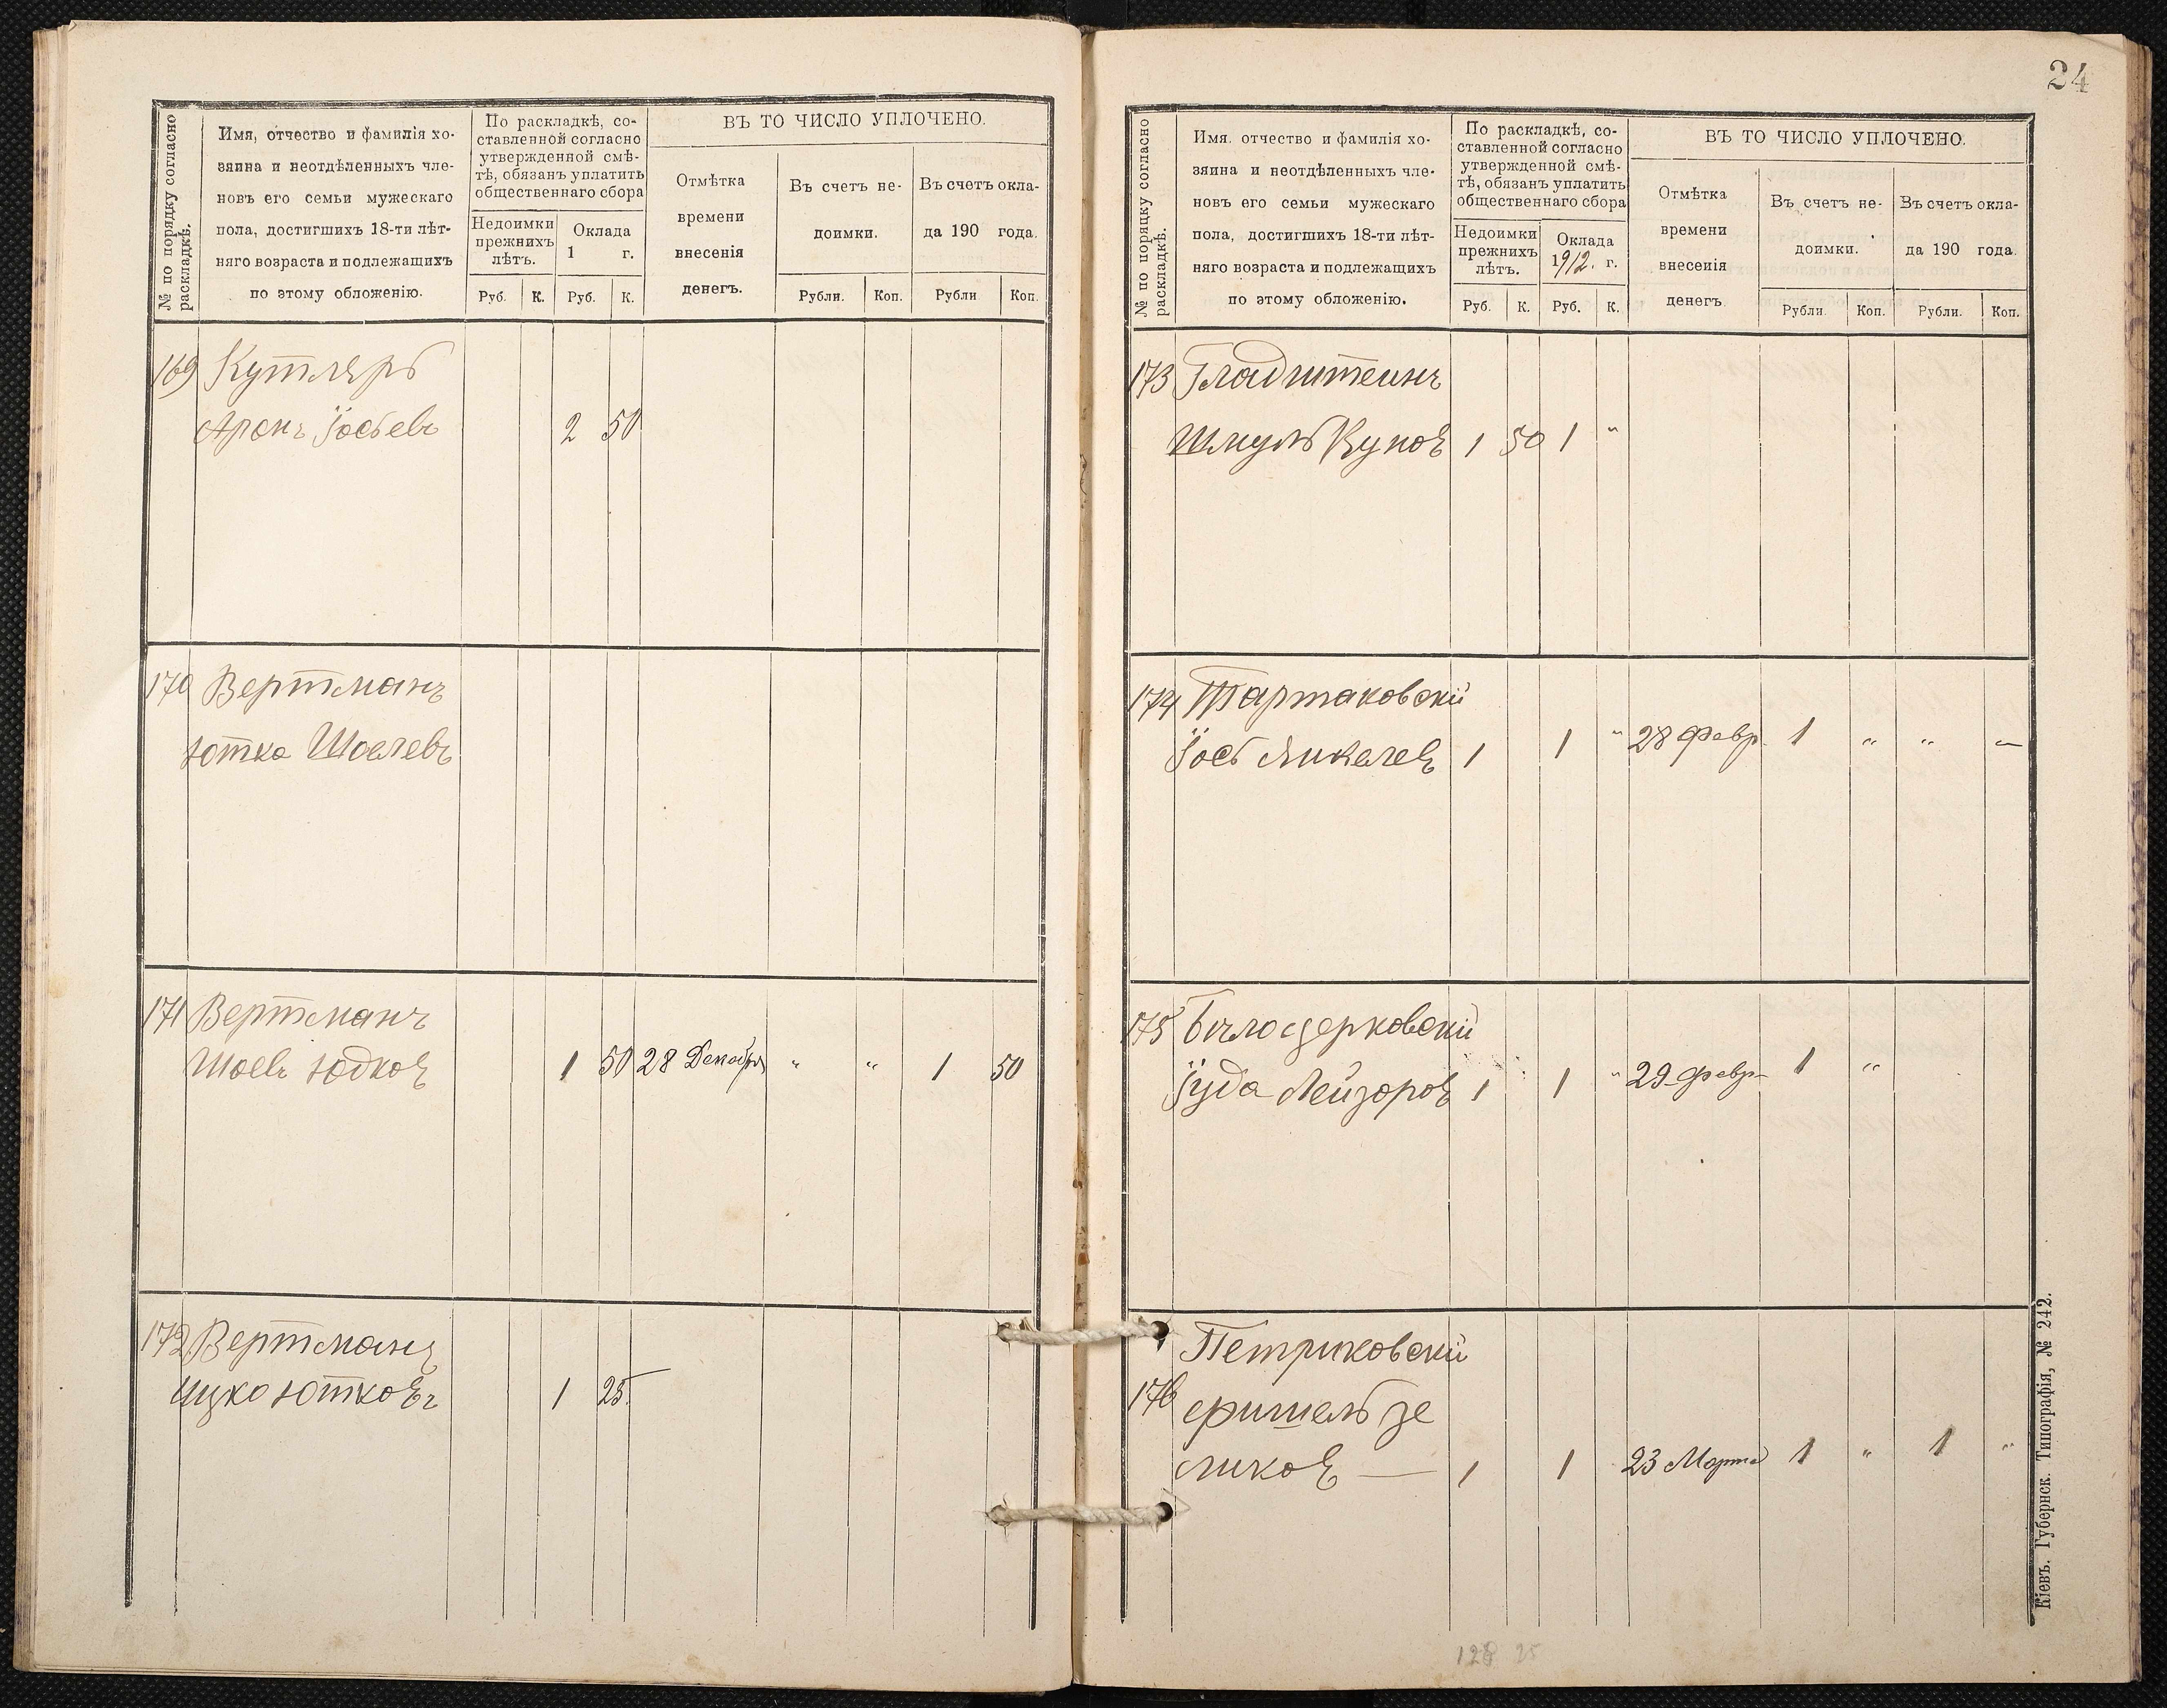 № по порядку согласно
раскладкѣ.
Имя, отчество и фамилія хо-
зяина и неотдѣленныхъ чле-
новъ его семьи мужескаго
пола, достигшихъ 18-ти лѣт-
няго возраста и подлежащихъ
по этому обложенію.
По раскладкѣ, со-
ставленной согласно
утвержденной смѣ-
тѣ, обязанъ уплатить
общественнаго сбора
Недоимки
прежнихъ
лѣтъ.
Оклада
1 г.
Руб. К. Руб. К.
ВЪ ТО ЧИСЛО УПЛОЧЕНО.
Отмѣтка
времени
внесенія
денегъ.
Въ счетъ не-
доимки.
Въ счетъ окла-
да 190 года.
Рубли. Коп. Рубли Коп.
169 Кутляръ
Аронъ Іосьевъ 2 50
170 Вертманъ
Ютка Шоелевъ
171 Вертманъ
Шоевъ Юдковъ 1 50 28 Декабря " " 1 50
172 Вертманъ
Ицко Ютковъ 1 25
24
№ по порядку согласно
раскладкѣ.
Имя. отчество и фамилія хо-
зяина и неотдѣленныхъ чле-
новъ его семьи мужескаго
пола, достигшихъ 18-ти лѣт-
няго возраста и подлежащихъ
по этому обложенію.
По раскладкѣ, со-
ставленной согласно
утвержденной смѣ-
тѣ, обязанъ уплатить
общественнаго сбора
Недоимки
прежнихъ
лѣтъ.
Оклада
1912. г.
Руб. К. Руб. К.
ВЪ ТО ЧИСЛО УПЛОЧЕНО.
Отмѣтка
времени
внесенія
денегъ
Въ счетъ не-
доимки.
Въ счетъ окла-
да 190 года.
Рубли. Коп. Рубли. Коп.
173 Гладштеинъ
Шмуль Куновъ 1 50 1 "
174 Тартаковскій
Іось 1 1 " 28 Февр. 1 " " "
175 Бѣлоцерковскій
Іуда Лейзоровъ 1 1 " 29 Февр. 1 "
Петриковскій
176 Фришель Зе
ликовъ — 1 1 23 Марта 1 " 1 "
Кіевъ. Губернск. Типографія, № 242.
128 25